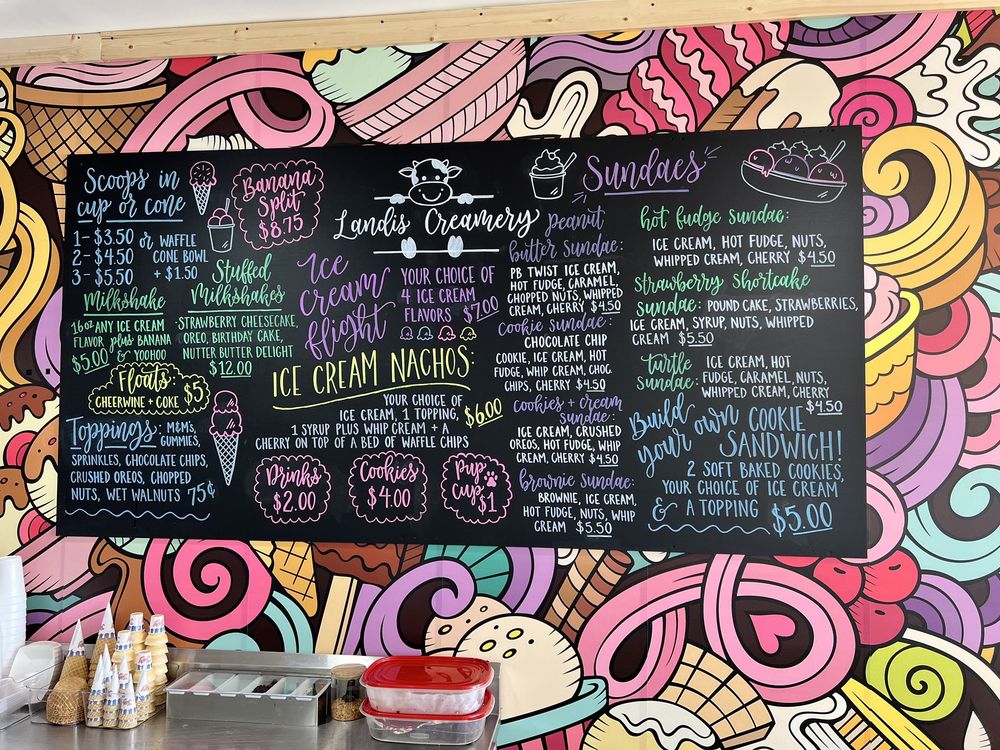 Scoops in
cup or cone
1 - $3.50
2 - $4.50
3 - $5.50
or WAFFLE
CONE BOWL
+ $1.50
Banana
Split
$8.75
Milkshake
16oz ANY ICE CREAM
FLAVOR plus BANANA
$5.00 & YOOHOO
Stuffed
Milkshakes
STRAWBERRY CHEESECAKE,
OREO, BIRTHDAY CAKE,
NUTTER BUTTER DELIGHT
$12.00
Floats: $5
CHEERWINE + COKE
Toppings: M&M'S,
GUMMIES,
SPRINKLES, CHOCOLATE CHIPS,
CRUSHED OREOS, CHOPPED
NUTS, WET WALNUTS 75¢
Landis Creamery
Ice
cream
flight
YOUR CHOICE OF
4 ICE CREAM
FLAVORS $7.00
ICE CREAM NACHOS:
YOUR CHOICE OF
ICE CREAM, 1 TOPPING,
1 SYRUP PLUS WHIP CREAM + A
CHERRY ON TOP OF A BED OF WAFFLE CHIPS
$6.00
Drinks
$2.00
Cookies
$4.00
Pup
cup
$1
Sundaes
peanut
butter sundae:
PB TWIST ICE CREAM,
HOT FUDGE, CARAMEL,
CHOPPED NUTS, WHIPPED
CREAM, CHERRY $4.50
cookie sundae:
CHOCOLATE CHIP
COOKIE, ICE CREAM, HOT
FUDGE, WHIP CREAM, CHOC
CHIPS, CHERRY $4.50
cookies + cream
sundae:
ICE CREAM, CRUSHED
OREOS, HOT FUDGE, WHIP
CREAM, CHERRY $4.50
brownie sundae:
BROWNIE, ICE CREAM,
HOT FUDGE, NUTS, WHIP
CREAM $5.50
hot fudge sundae:
ICE CREAM, HOT FUDGE, NUTS,
WHIPPED CREAM, CHERRY $4.50
strawberry shortcake
sundae: POUND CAKE, STRAWBERRIES,
ICE CREAM, SYRUP, NUTS, WHIPPED
CREAM $5.50
turtle
sundae:
ICE CREAM, HOT
FUDGE, CARAMEL, NUTS,
WHIPPED CREAM, CHERRY
$4.50
Build
your own COOKIE
SANDWICH!
2 SOFT BAKED COOKIES,
YOUR CHOICE OF ICE CREAM
& A TOPPING $5.00